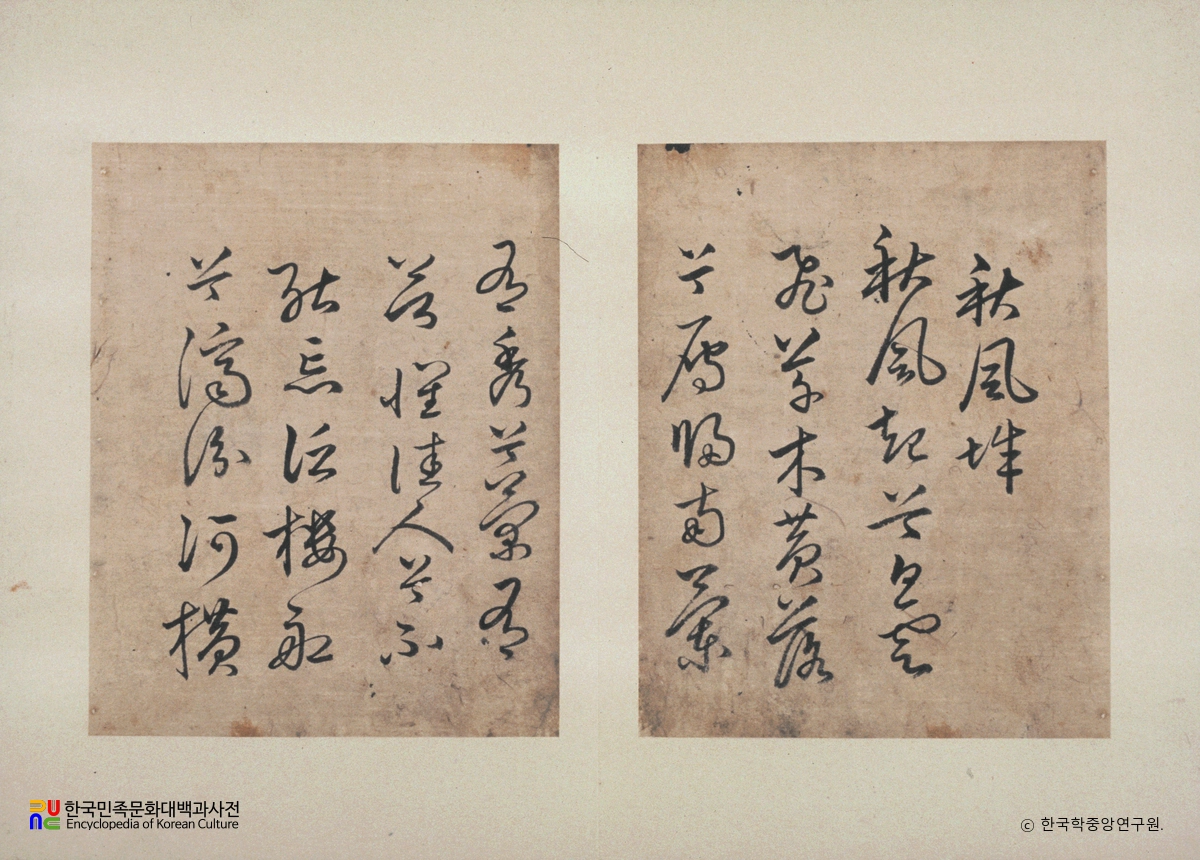 秋風辭
秋風起兮白雲
飛草木黃落
兮雁歸南蘭
有秀兮菊有
芳懷佳人兮不
能忘泛樓船
兮濟汾河橫
한국민족문화대백과사전
Encyclopedia of Korean Culture
ⓒ 한국학중앙연구원.